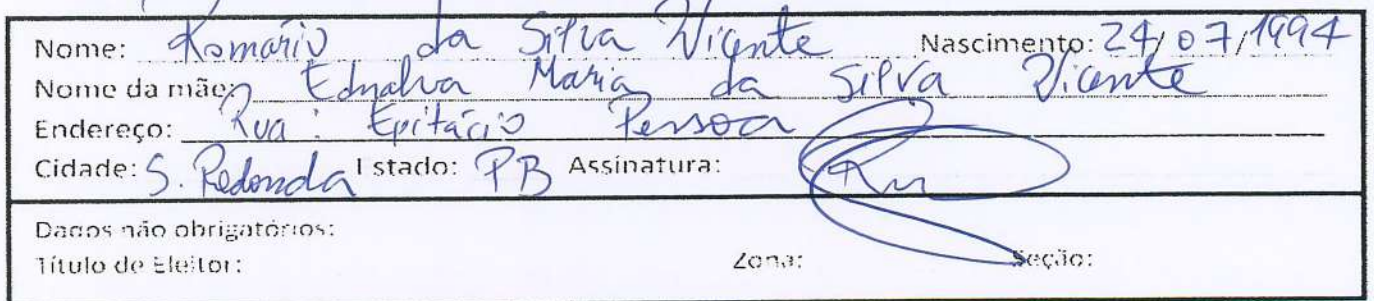 Nome: Romário da Silva Vicente Nascimento: 24/07/1994
Nome da mãe: Ednalva Maria da Silva Vicente
Endereço: Rua: Epitácio Pessoa
Cidade: S. Redonda Estado: PB Assinatura:
Dados não obrigatórios:
Título de Eleitor: Zona: Seção: